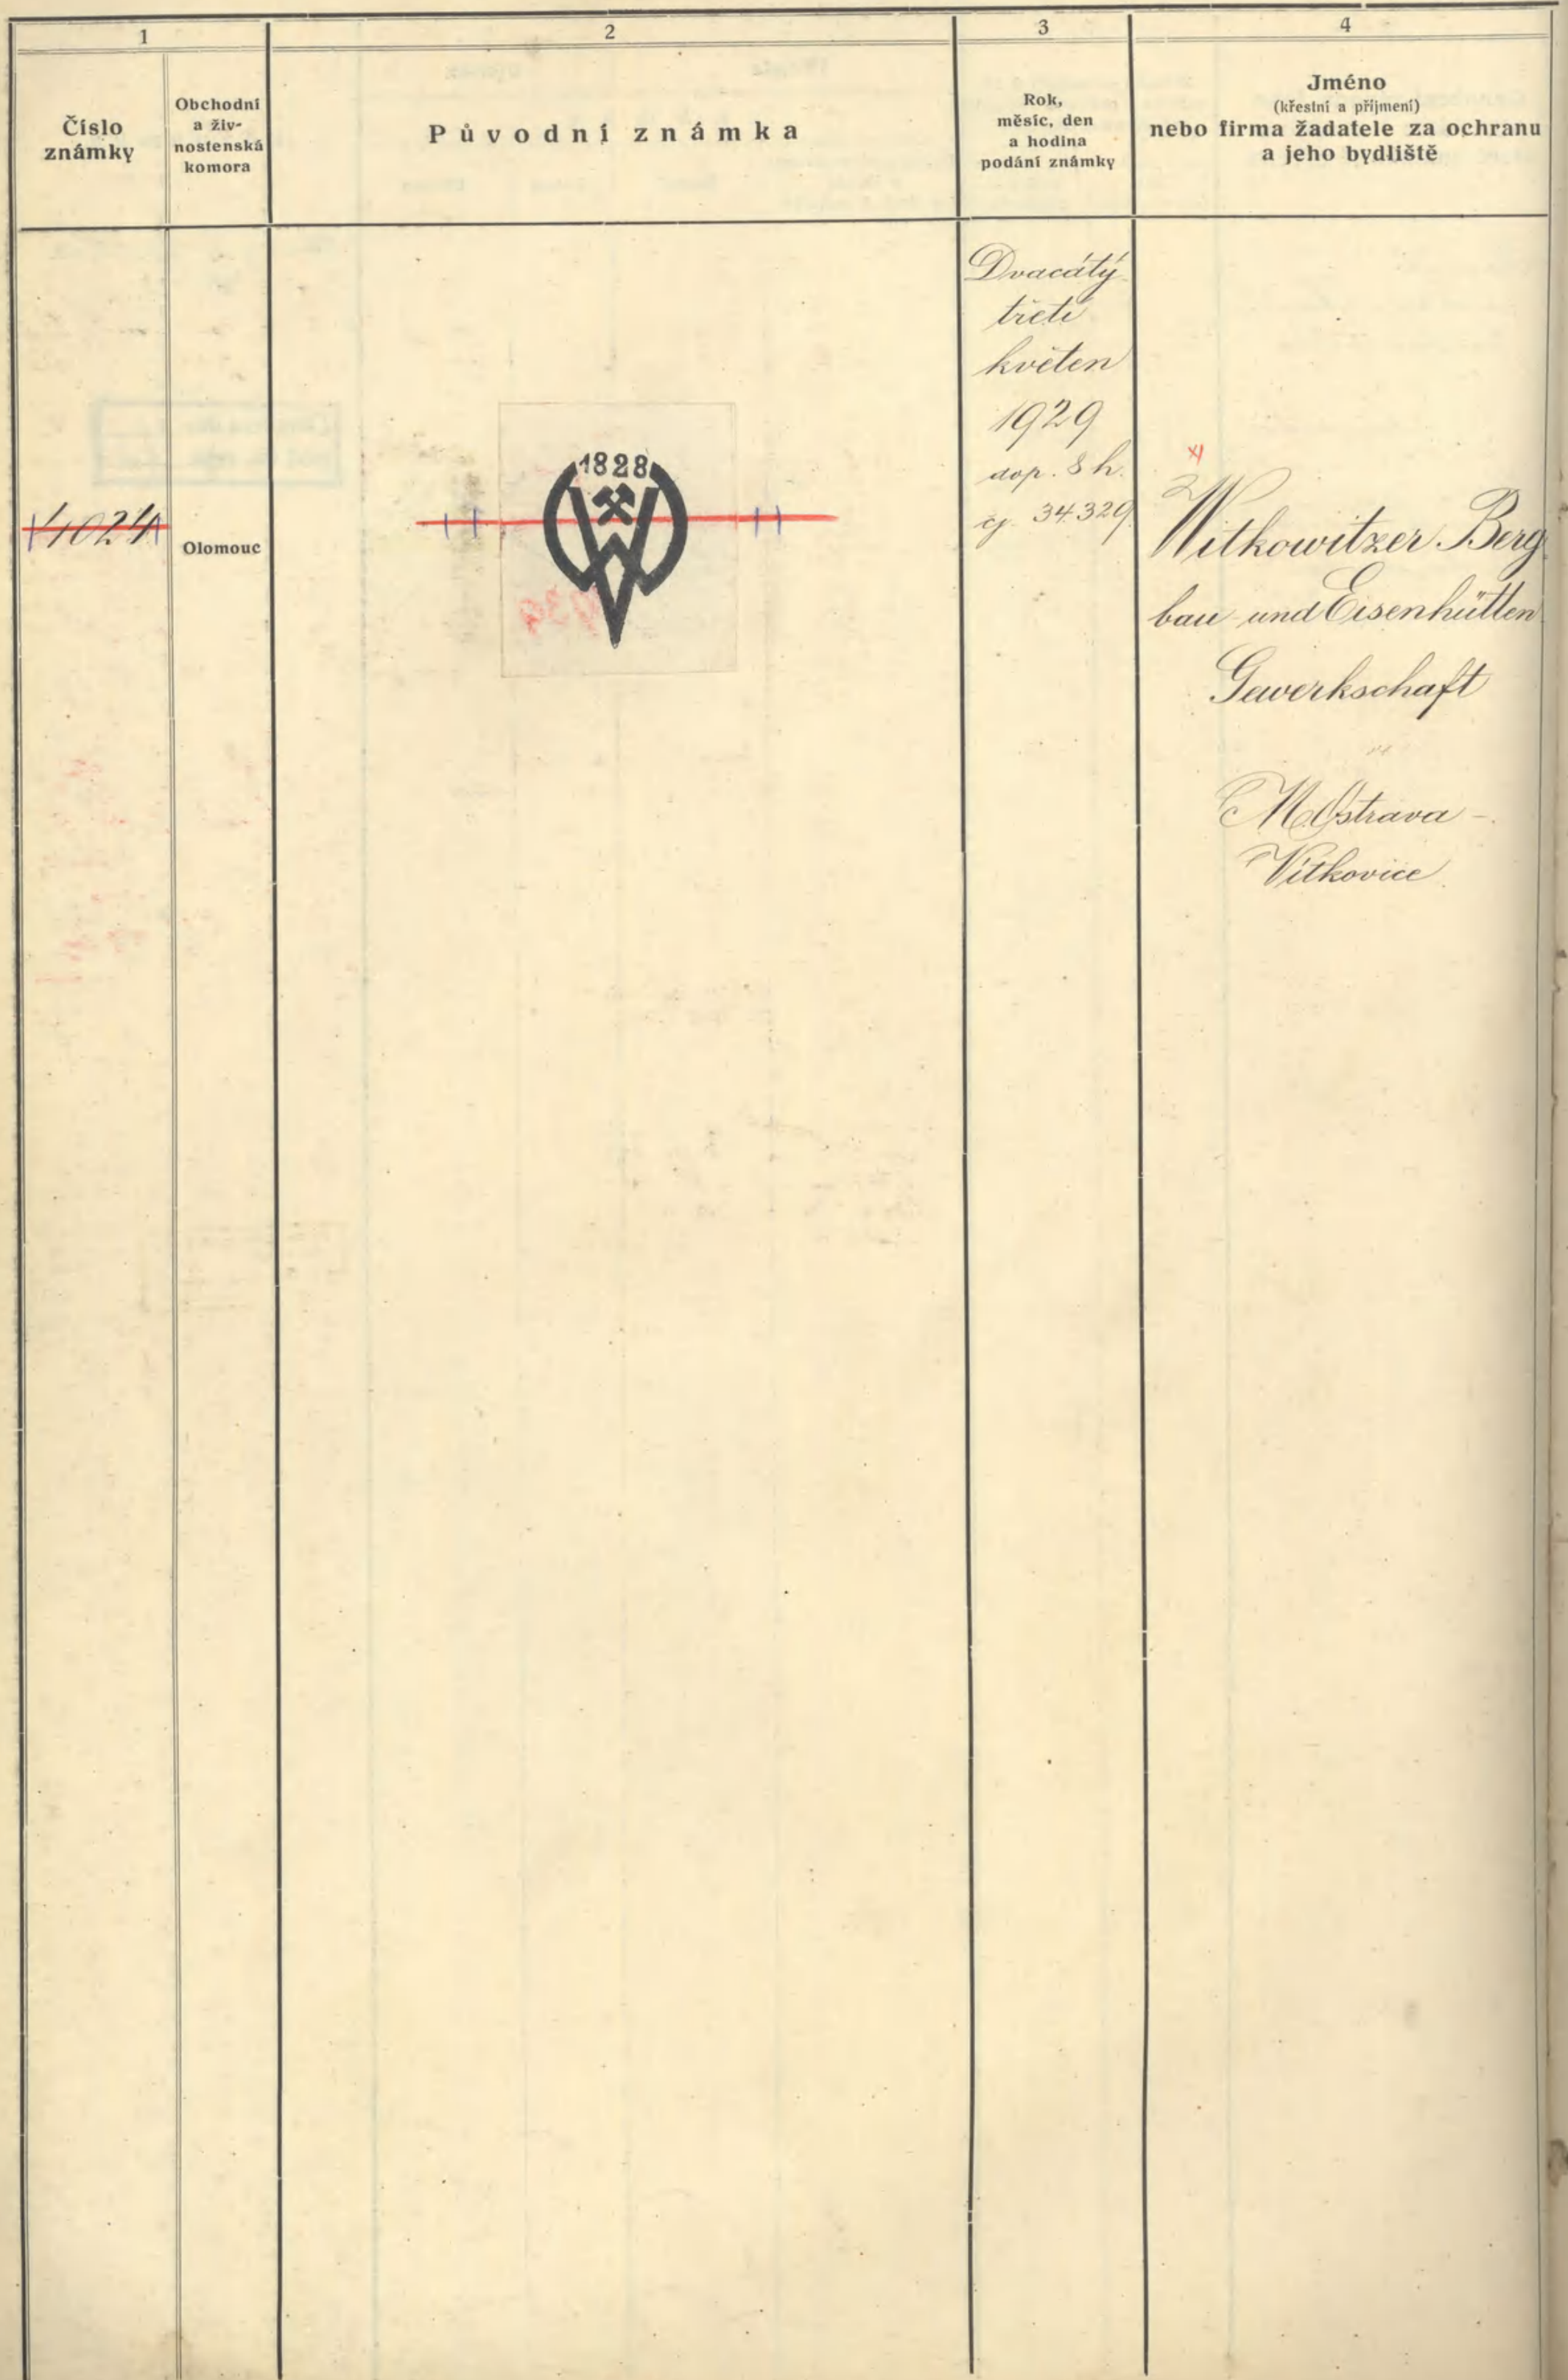 1
2
3
4
Číslo
známky
Obchodní
a živ-
nostenská
komora
Původní známka
Rok,
měsíc, den
a hodina
podání známky
Jméno
(křestní a příjmení)
nebo firma žadatele za ochranu
a jeho bydliště
4024
Olomouc
1828
Dvacátý
třetí
květen
1929
dop. 8 h.
čj. 34.329.
Witkowitzer Berg
bau und Eisenhütten
Gewerkschaft
M. Ostrava -
Vítkovice